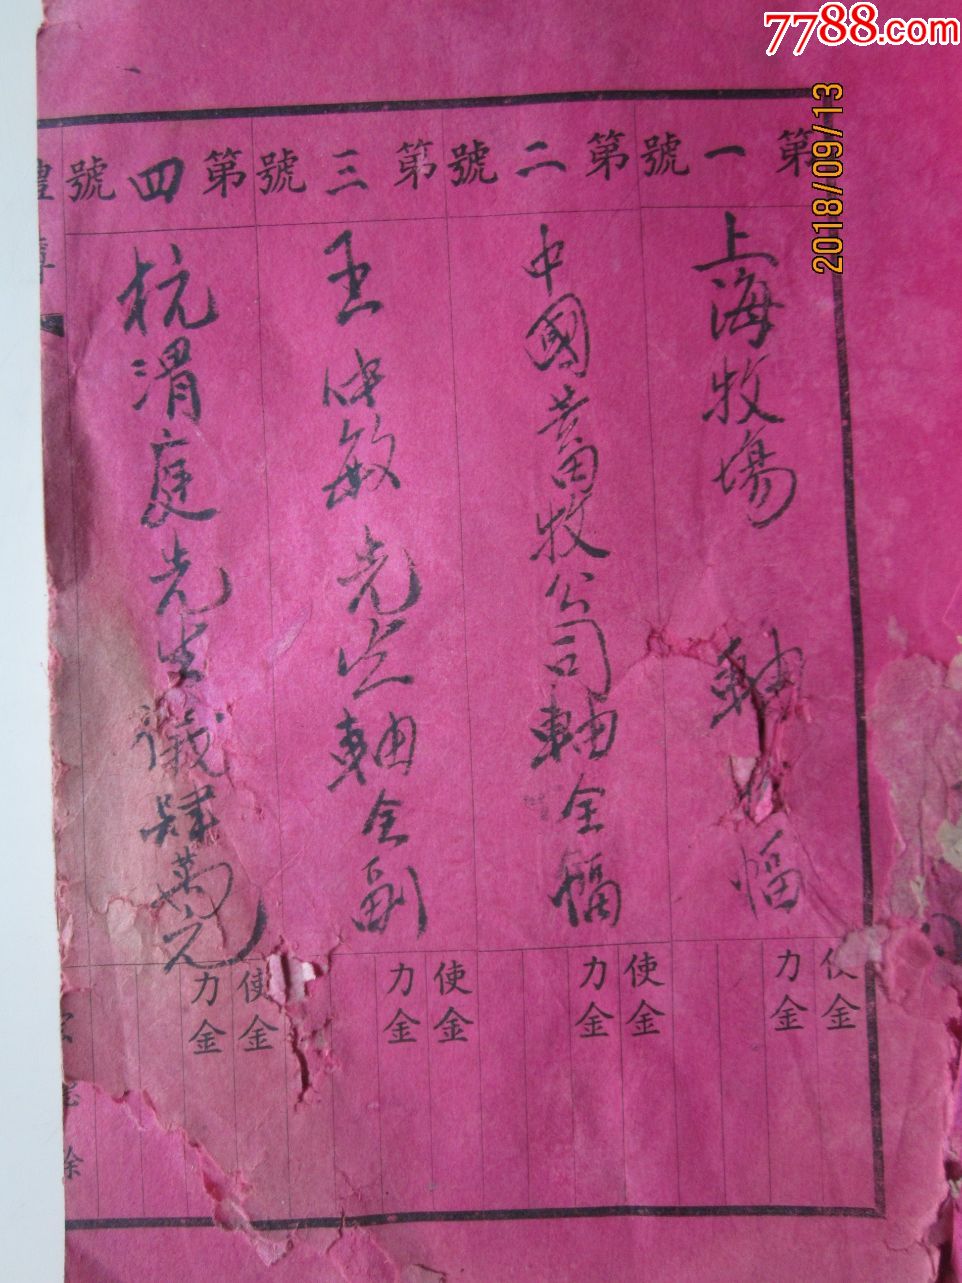 7788.com
2018/09/13
第一號
上海牧場 軸 幅
使金
力金
第二號
中國畜牧公司軸全幅
使金
力金
第三號
王仲敏先生軸全副
使金
力金
第四號
杭渭庭先生儀肆萬元
使金
力金
禮